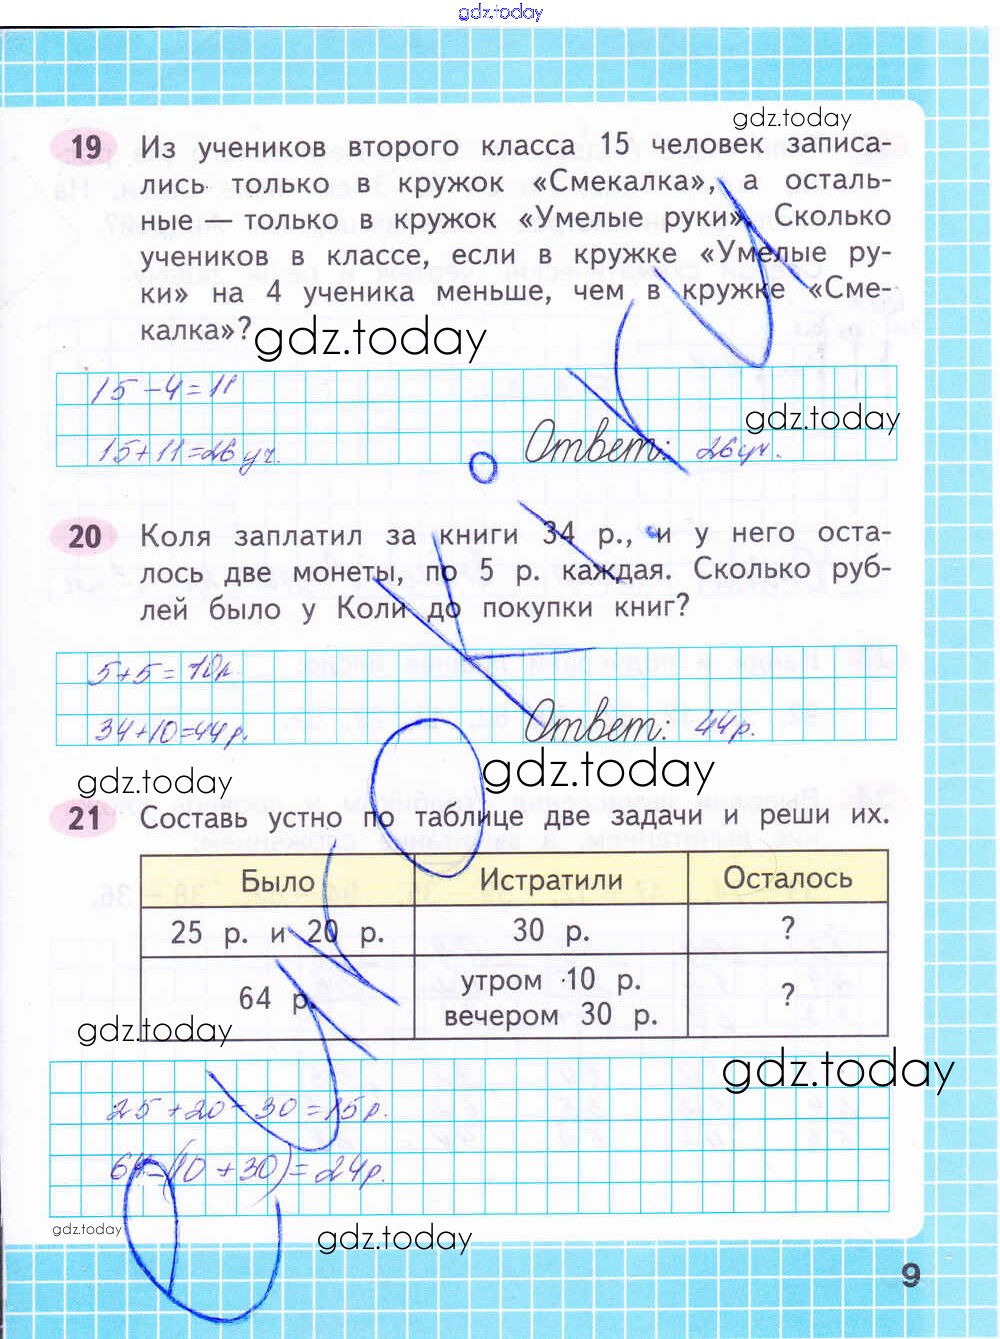 gdz.today
gdz.today
19 Из учеников второго класса 15 человек записа-
лись только в кружок «Смекалка», а осталь-
ные — только в кружок «Умелые руки». Сколько
учеников в классе, если в кружке «Умелые ру-
ки» на 4 ученика меньше, чем в кружке «Сме-
калка»?
gdz.today
15 - 4 = 11
gdz.today
15 + 11 = 26 уч. Ответ: 26 уч.
20 Коля заплатил за книги 34 р., и у него оста-
лось две монеты, по 5 р. каждая. Сколько руб-
лей было у Коли до покупки книг?
5 + 5 = 10 р.
34 + 10 = 44 р. Ответ: 44 р.
gdz.today gdz.today
21 Составь устно по таблице две задачи и реши их.
Было Истратили Осталось
25 р. и 20 р. 30 р. ?
64 р. утром 10 р. ?
вечером 30 р.
gdz.today
gdz.today
25 + 20 - 30 = 15 р.
64 - (10 + 30) = 24 р.
gdz.today
gdz.today
9